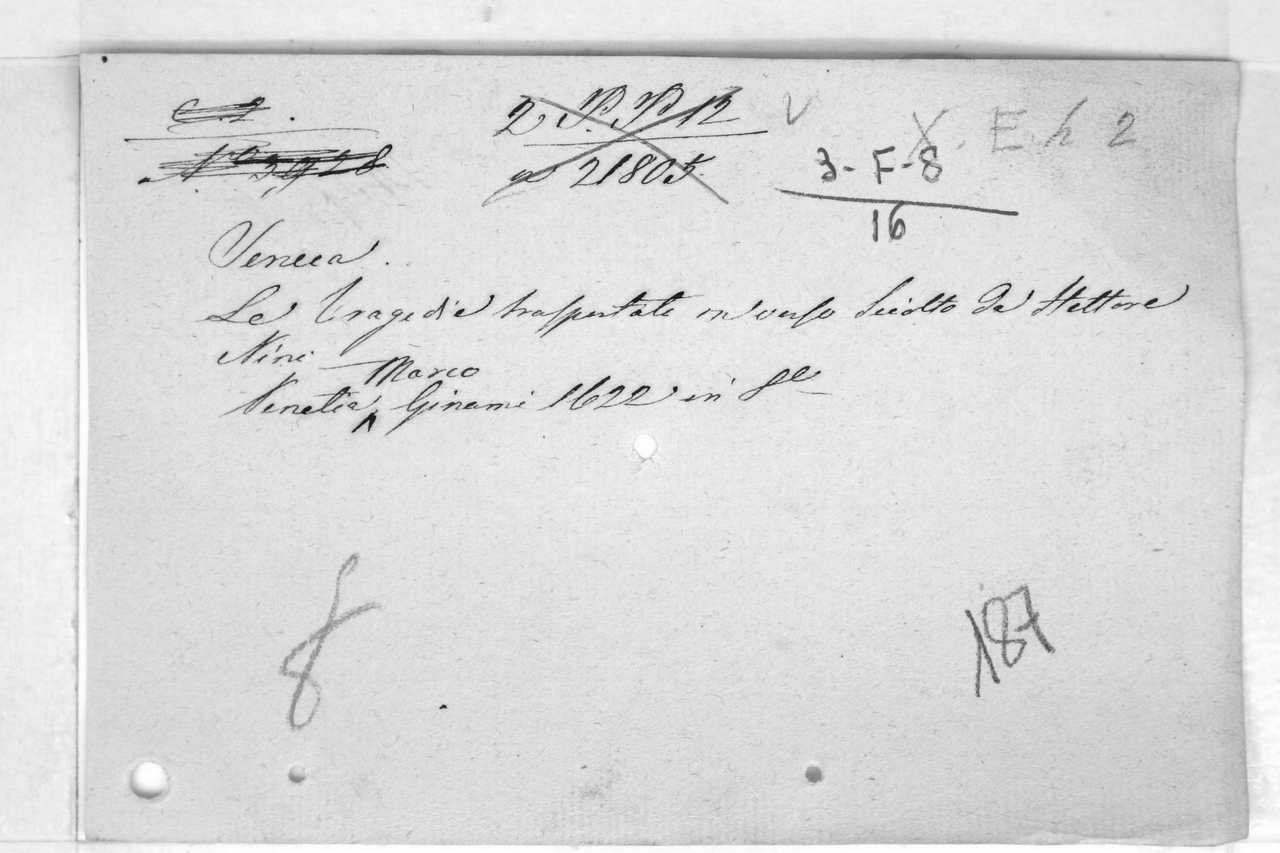 C. 1. 2 P. P. 12 V X. E h 2
No 3,928 no 21805. 3 - F - 8
16
Seneca.
Le Tragedie trasportate in verso Sciolto da Hettore
Nini
Venetia, Marco Ginami 1622 in 8o
8
187